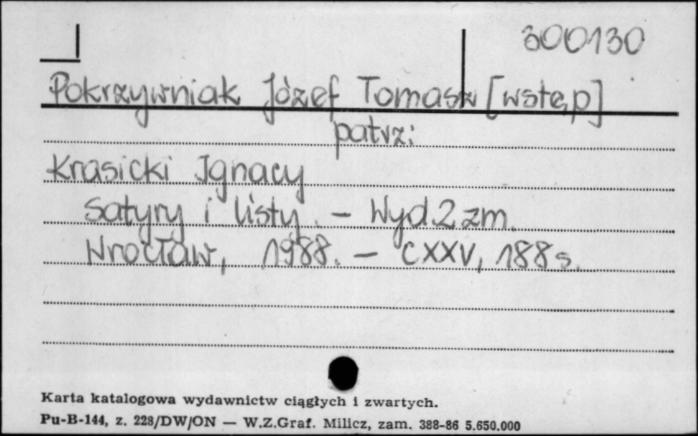 300130
Pokrzywniak Józef Tomasz [wstęp]
patrz:
Krasicki Ignacy
Satyry i listy. – Wyd. 2 zm.
Wrocław, 1988. – CXXV, 188 s.
Karta katalogowa wydawnictw ciągłych i zwartych.
Pu-B-144, z. 228/DW/ON — W.Z.Graf. Milicz, zam. 388-86 5.650.000